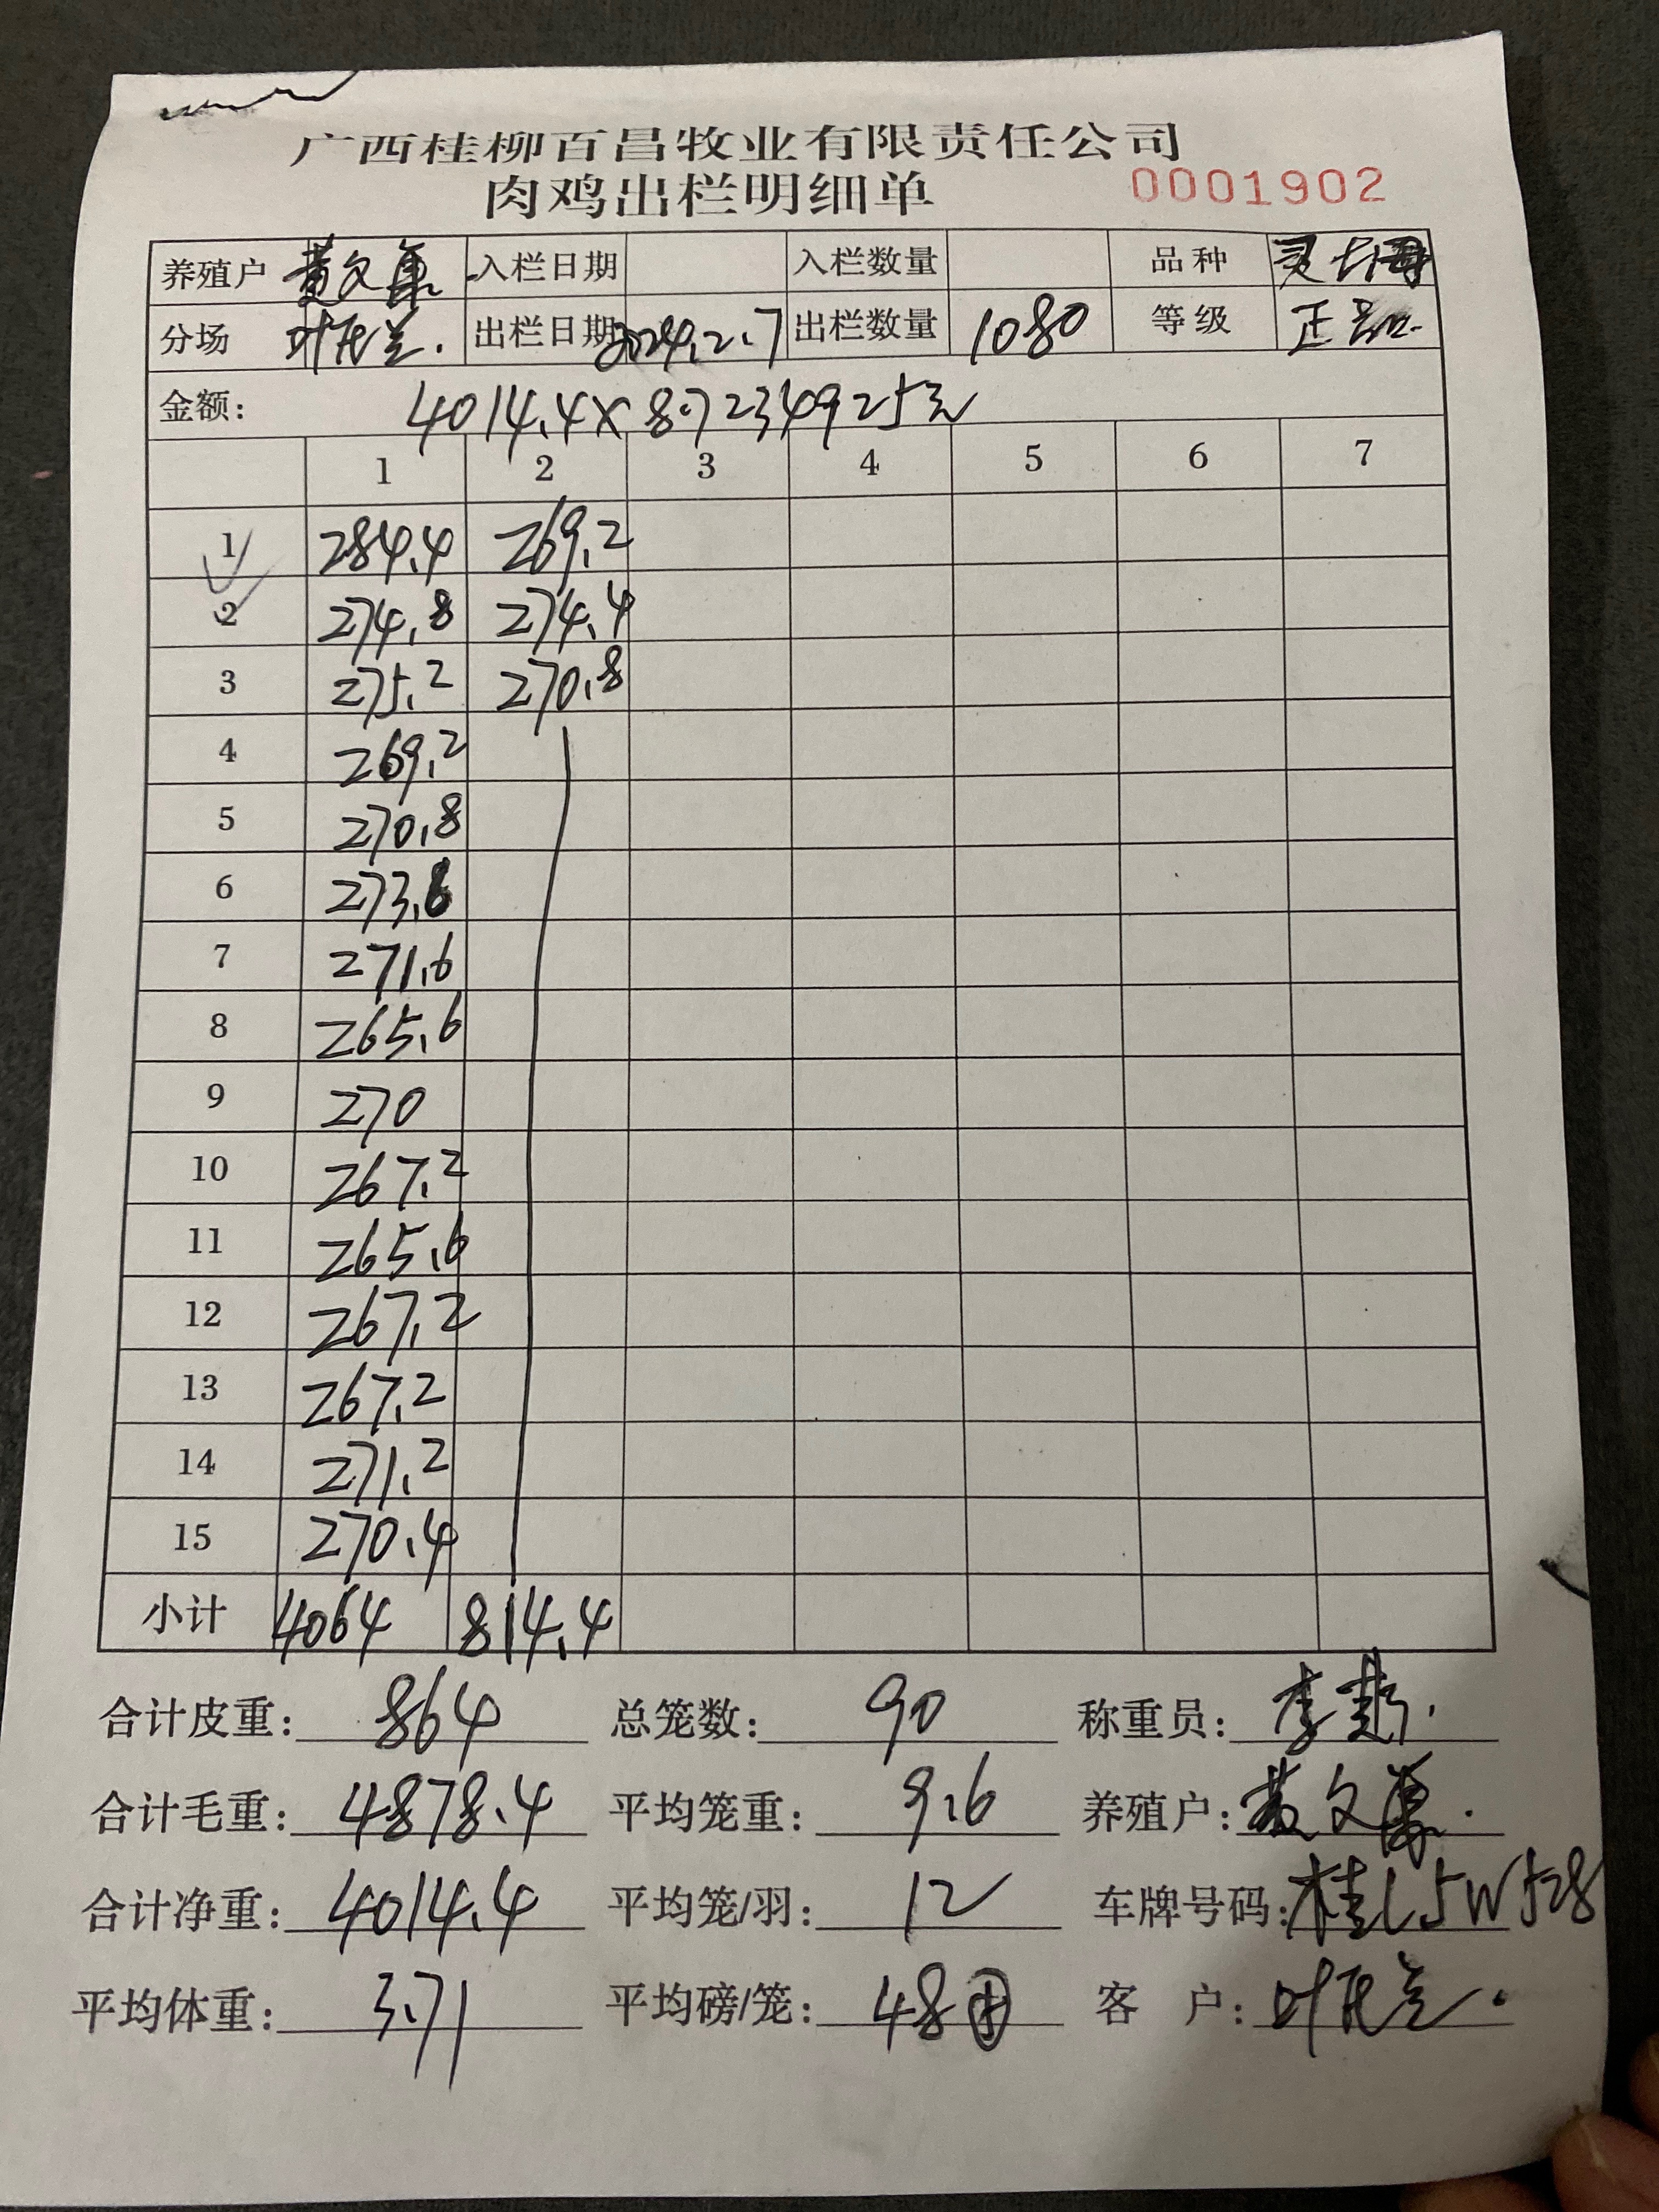 广西桂柳百昌牧业有限责任公司
肉鸡出栏明细单 0001902
养殖户 黄文 入栏日期 入栏数量 品种 灵
分场 叶 出栏日期 2024.2.7 出栏数量 1080 等级 正品
金额: 4014.4×8.7 234925元
1 2 3 4 5 6 7
1 284.4 269.2
2 274.8 274.4
3 275.2 270.8
4 269.2
5 270.8
6 273.6
7 271.6
8 265.6
9 270
10 267.2
11 265.6
12 267.2
13 267.2
14 271.2
15 270.4
小计 4064 814.4
合计皮重: 864 总笼数: 90 称重员: 李
合计毛重: 4878.4 平均笼重: 9.6 养殖户: 黄文
合计净重: 4014.4 平均笼/羽: 12 车牌号码: 桂L5W528
平均体重: 3.71 平均磅/笼: 48 客户: 叶